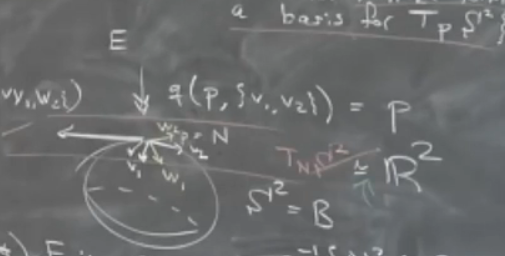 a basis for T_p S²
E
w₁, w₂})
q(p, {v₁, v₂}) = p
w₂ p = N
v₁ w₁ v₂
T_N S² ≃ ℝ²
S² = B